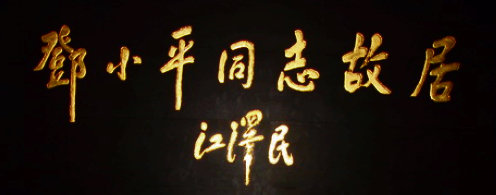 鄧小平同志故居
江澤民